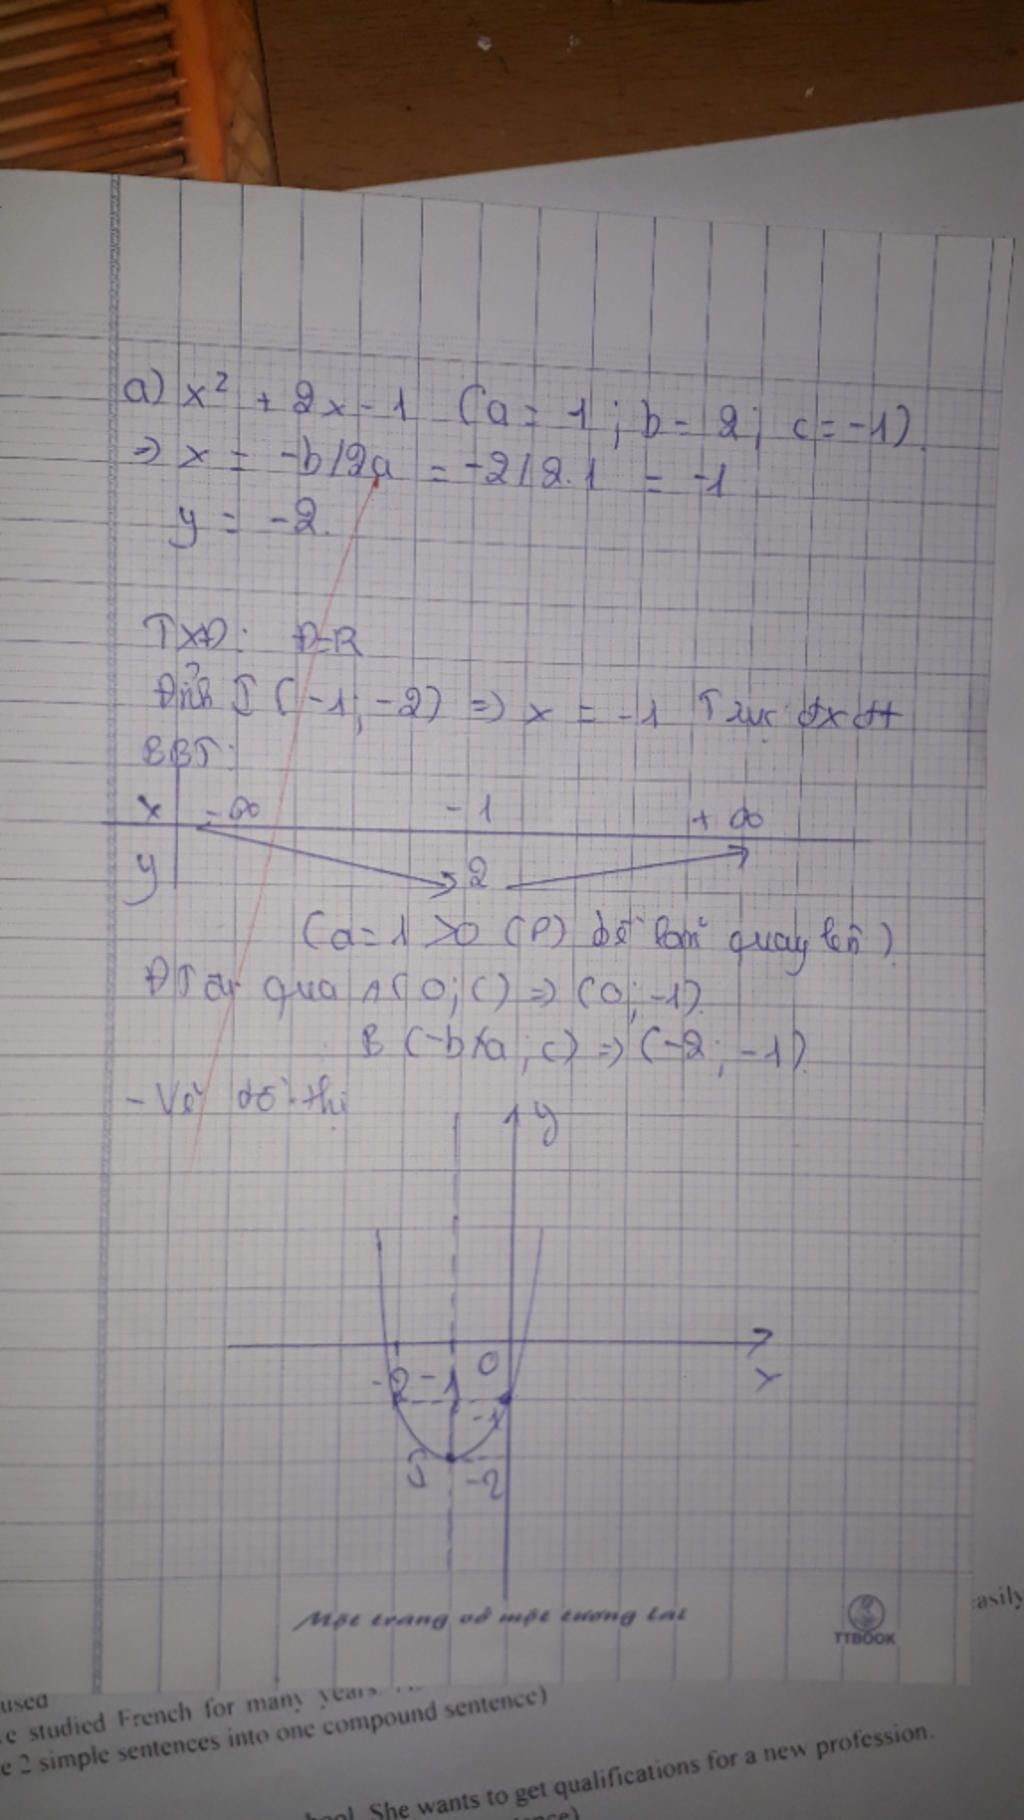 a) x² + 2x - 1 (a = 1; b = 2; c = -1)
=> x = -b/2a = -2/2.1 = -1
y = -2.
TXĐ: Đ=R
Đỉnh I (-1; -2) => x = -1 Trục đx đt
BBT:
x -∞ -1 +∞
y 2
(a = 1 > 0 (P) bề lõm quay lên)
ĐT đi qua A(0; c) => (0; -1)
B (-b/a; c) => (-2; -1)
- Vẽ đồ thị
y
0
-2 -1
x
-1
I
-2
Một trang vở một tương lai
TTBOOK
easily
used
e studied French for many years.
e 2 simple sentences into one compound sentence)
She wants to get qualifications for a new profession.